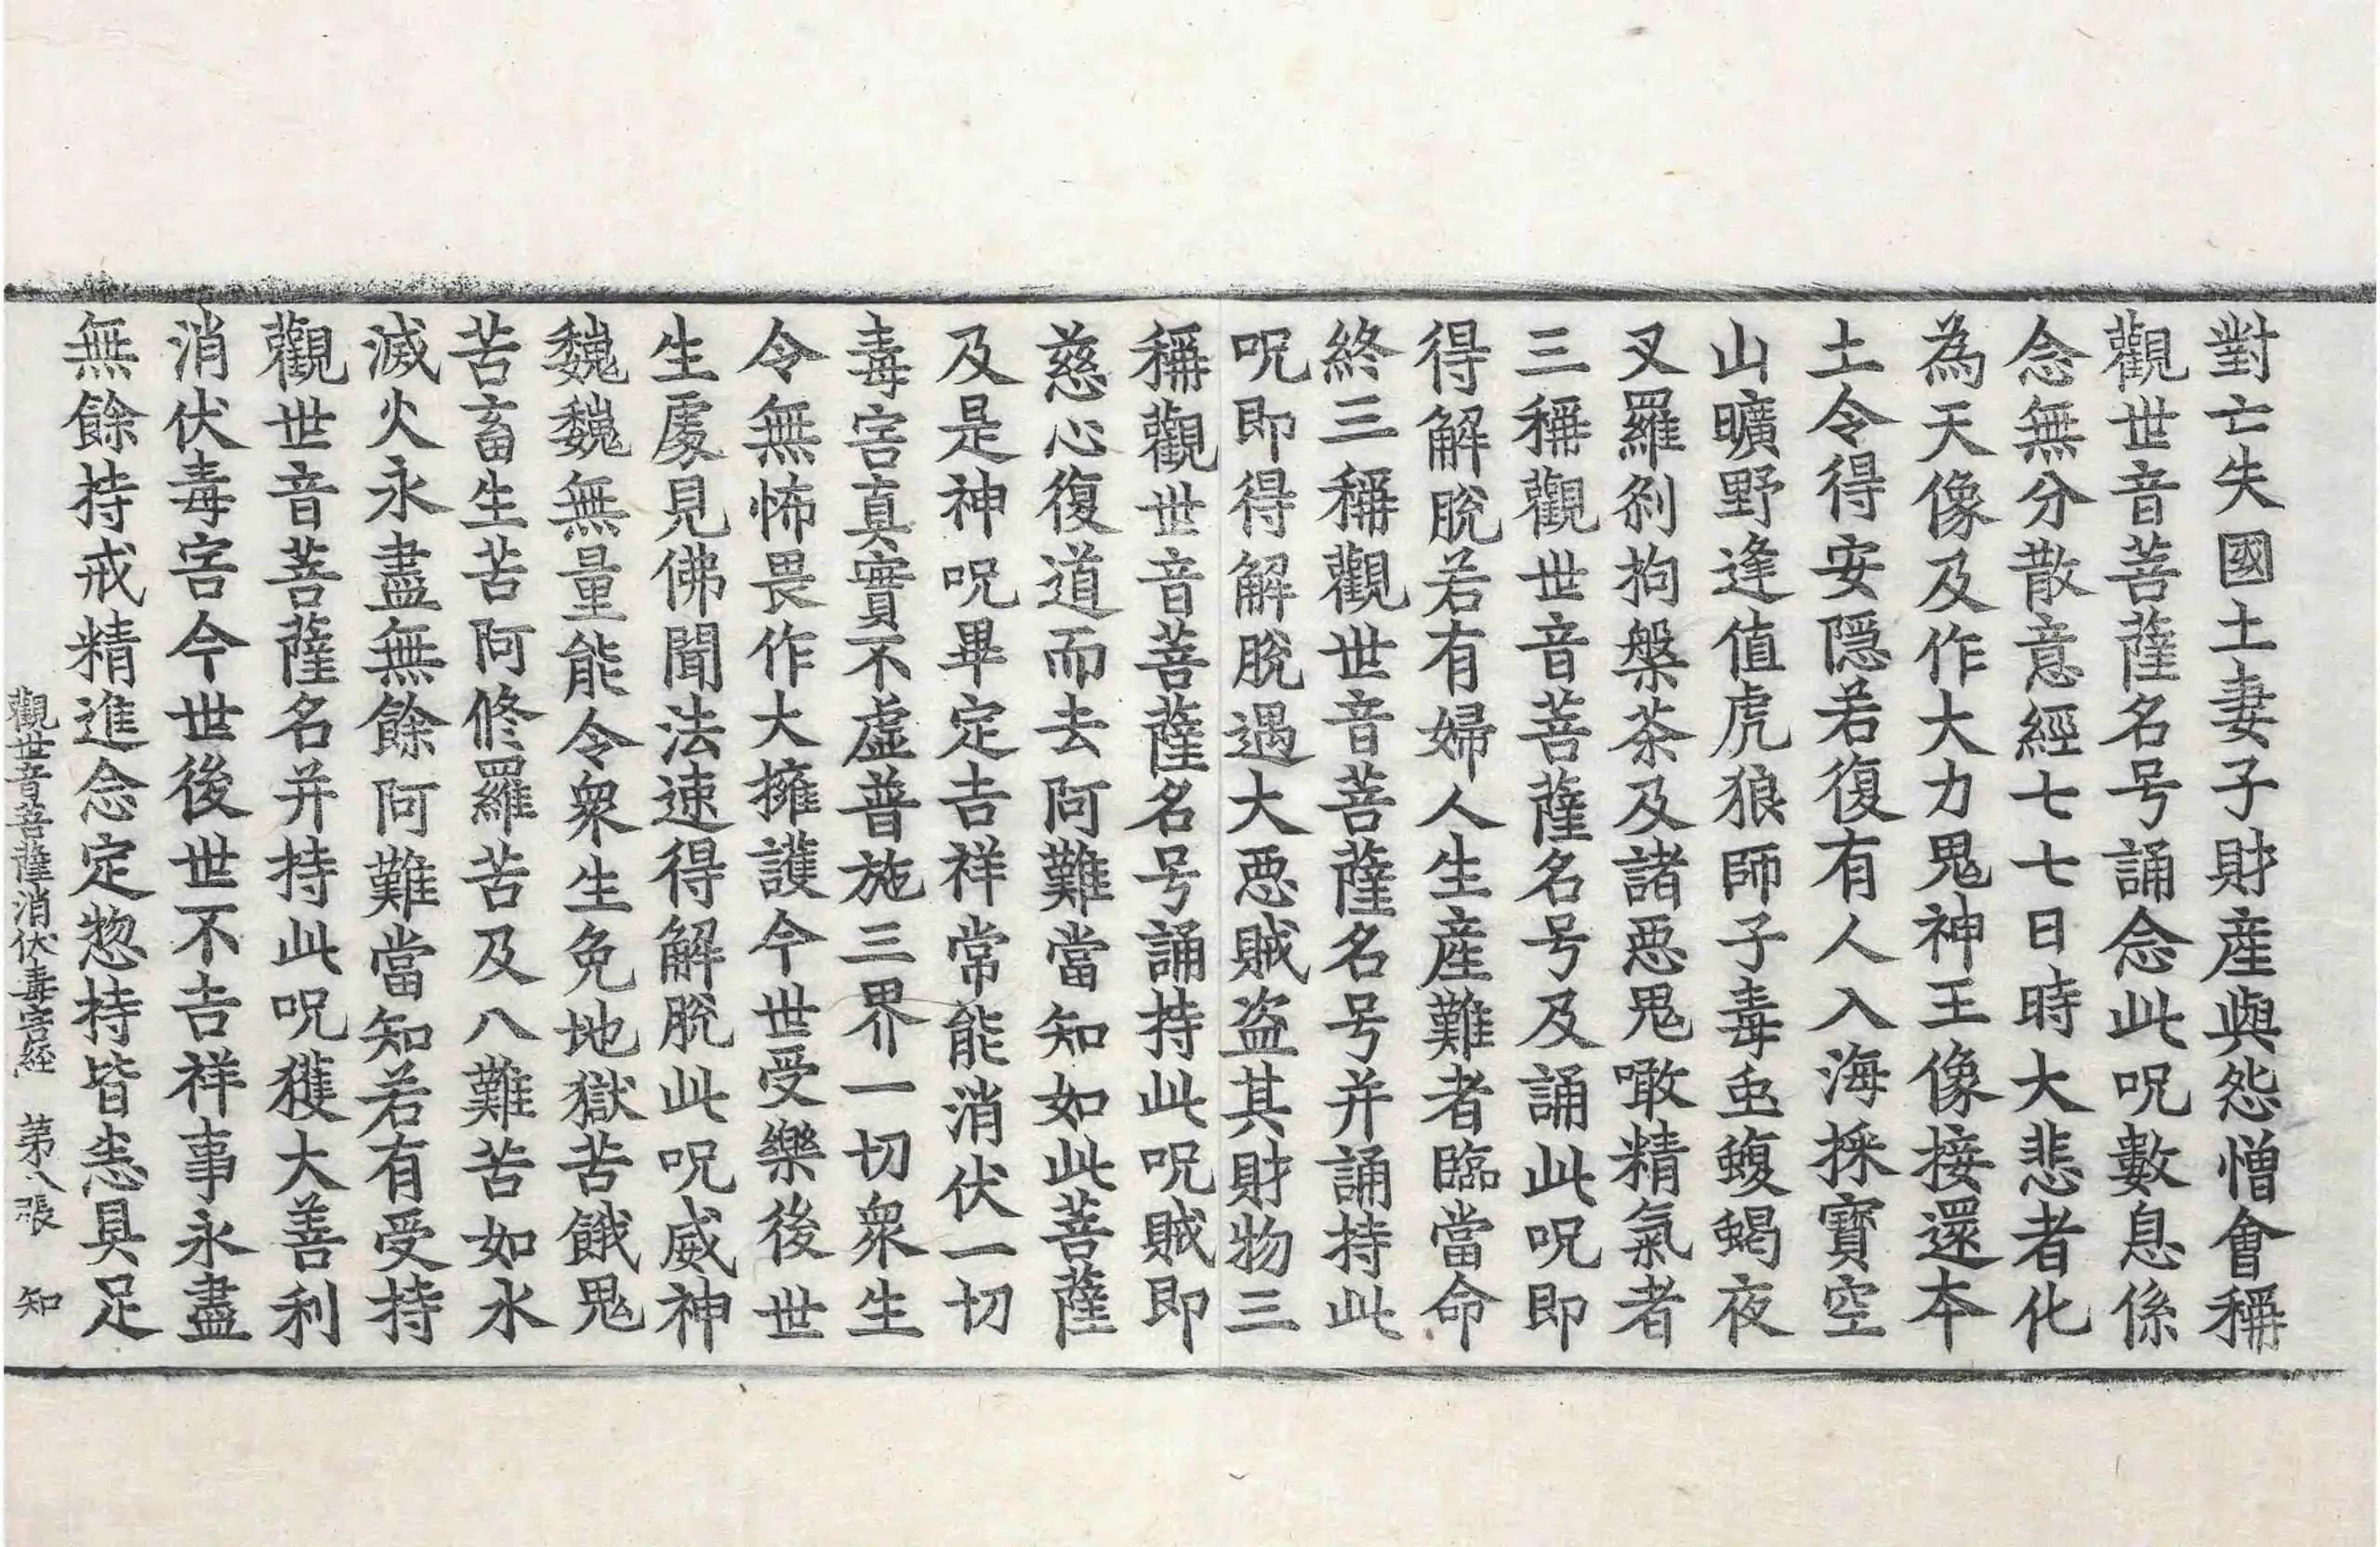 對亡失國土妻子財産與怨憎會稱
觀世音菩薩名号誦念此呪數息係
念無分散意經七七日時大悲者化
為天像及作大力鬼神王像接還本
土令得安隱若復有人入海採寶空
山曠野逢值虎狼師子毒虫蝮蝎夜
叉羅刹拘槃茶及諸惡鬼噉精氣者
三稱觀世音菩薩名号及誦此呪即
得解脫若有婦人生産難者臨當命
終三稱觀世音菩薩名号并誦持此
呪即得解脫遇大惡賊盜其財物三
稱觀世音菩薩名号誦持此呪賊即
慈心復道而去阿難當知如此菩薩
及是神呪畢定吉祥常能消伏一切
毒害真實不虛普施三界一切衆生
令無怖畏作大擁護今世受樂後世
生處見佛聞法速得解脫此呪威神
巍巍無量能令衆生免地獄苦餓鬼
苦畜生苦阿修羅苦及八難苦如水
滅火永盡無餘阿難當知若有受持
觀世音菩薩名并持此呪獲大善利
消伏毒害今世後世不吉祥事永盡
無餘持戒精進念定惣持皆悉具足
觀世音菩薩消伏毒害経 第八張 知